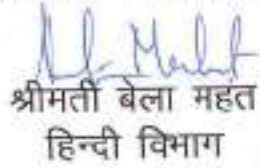 श्रीमती बेला महत
हिन्दी विभाग